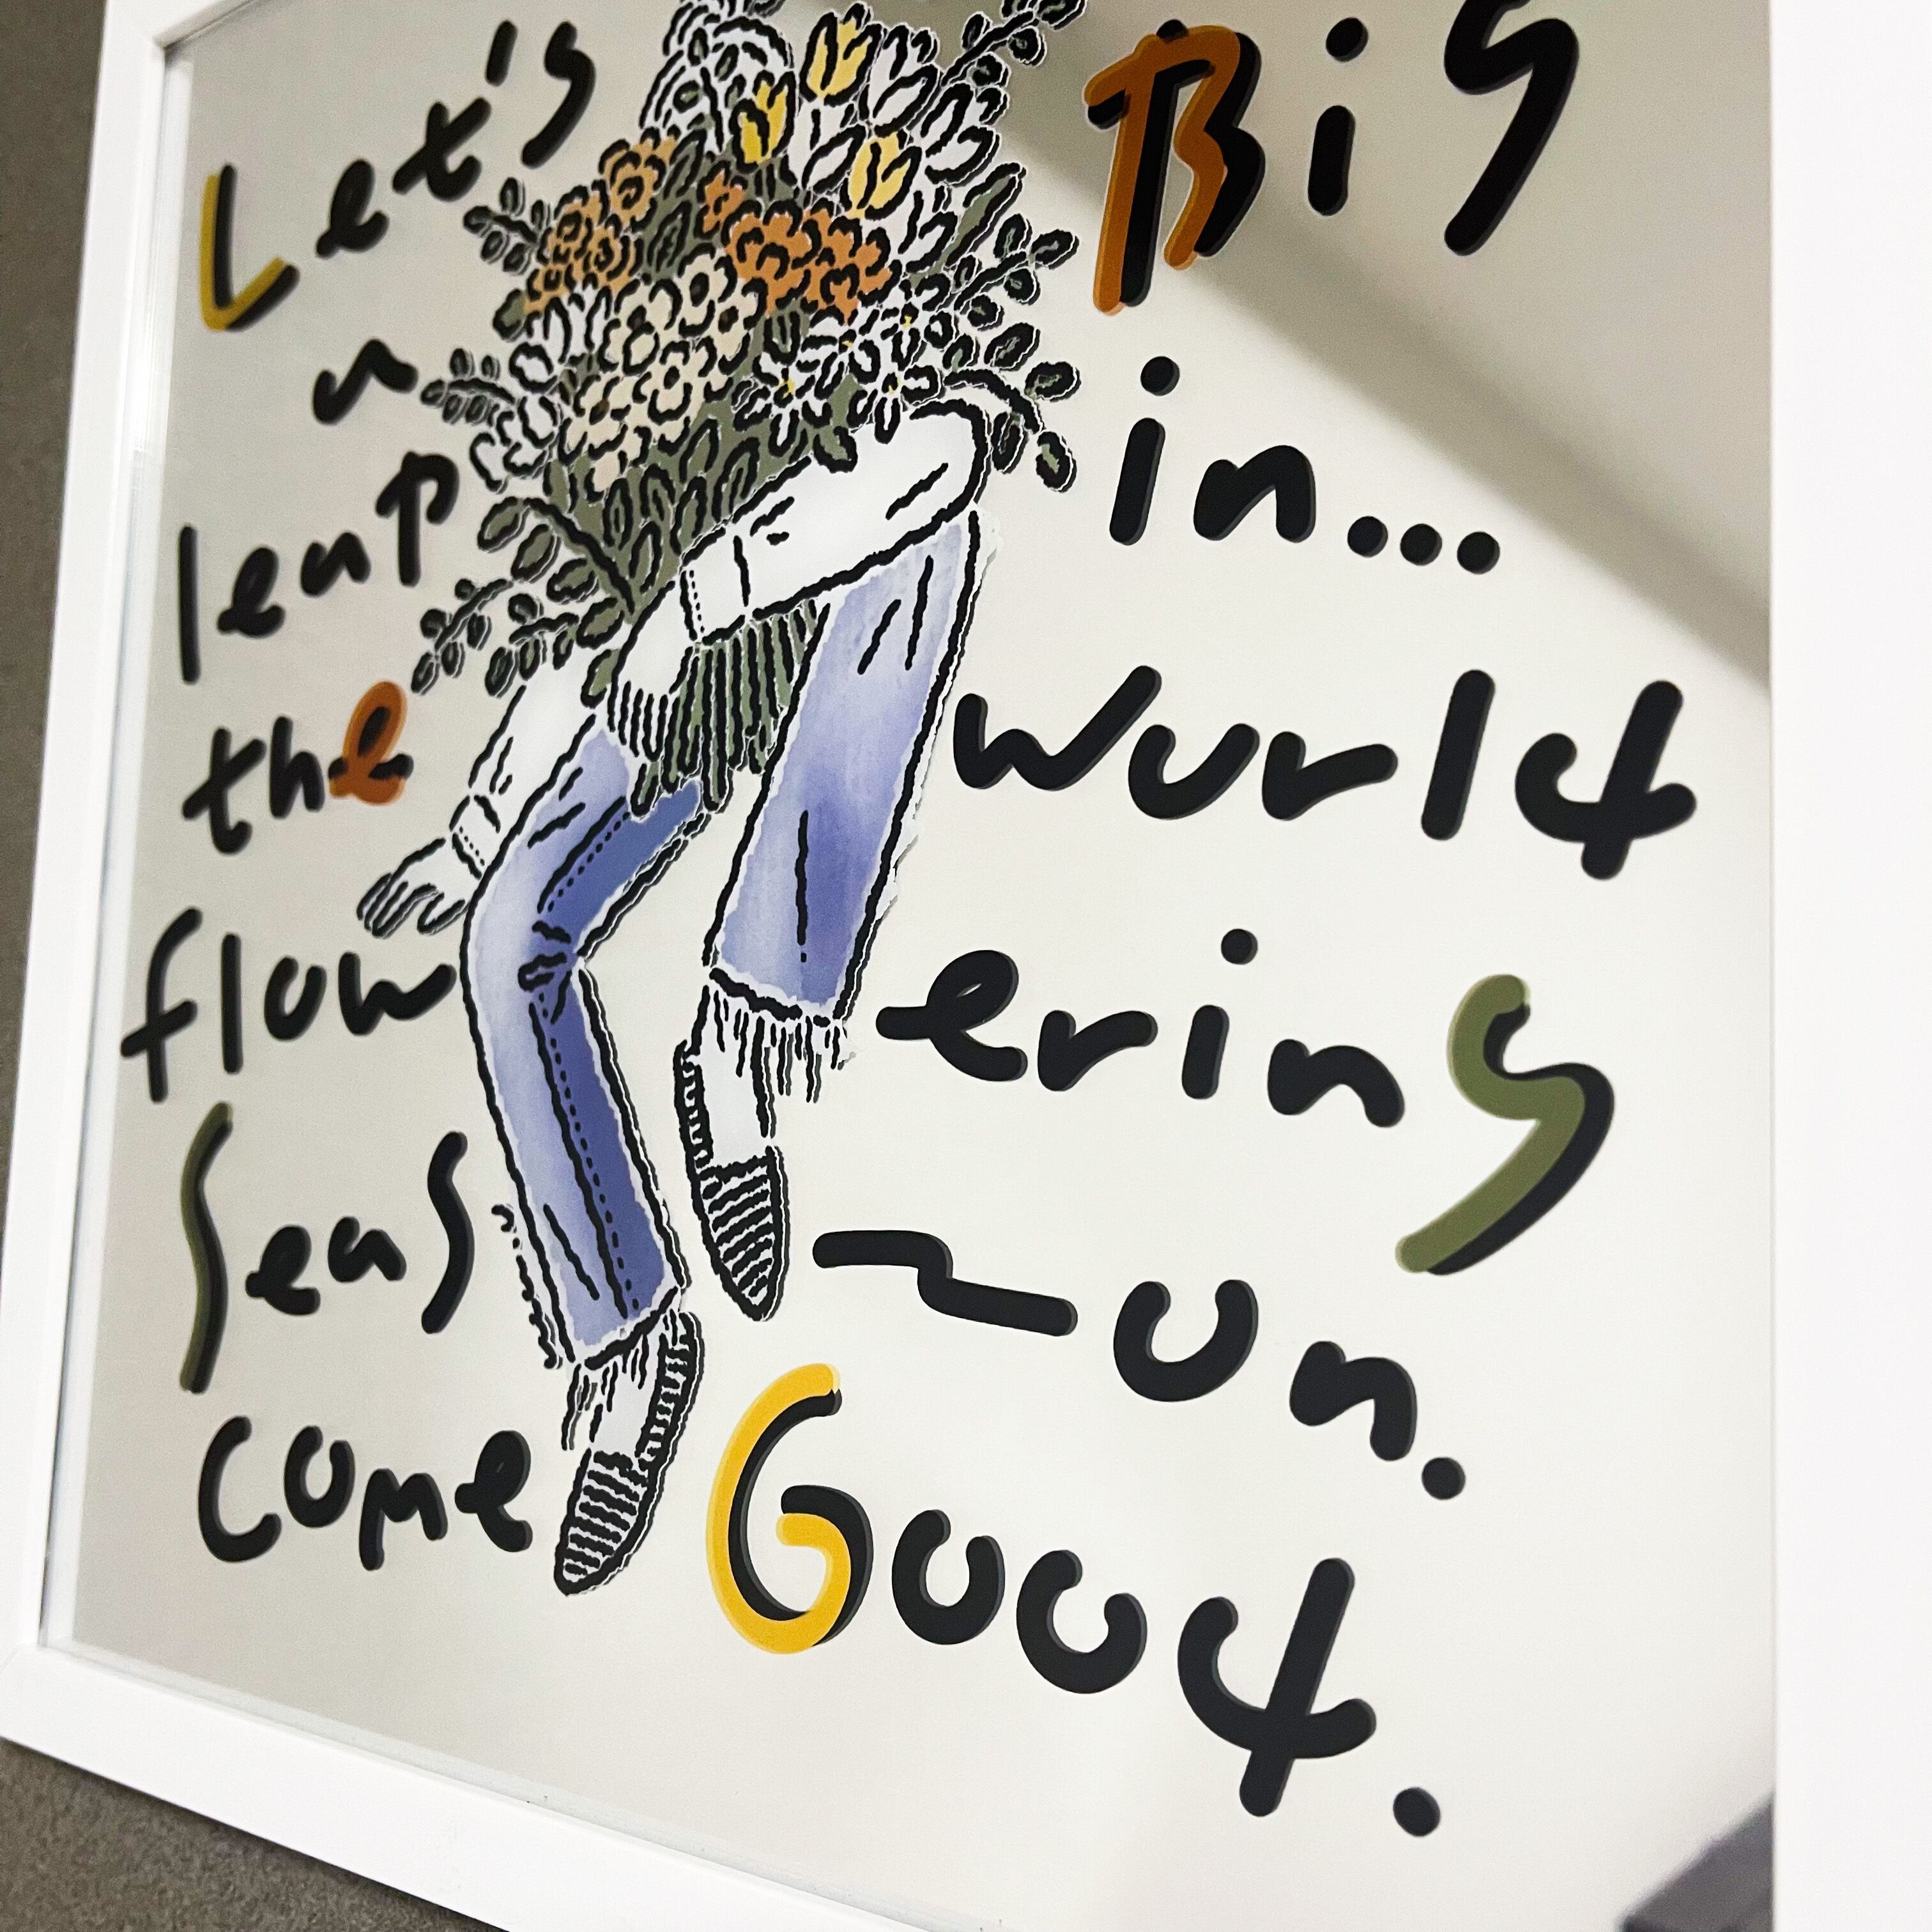 Let's Big
a
leap in...
the world
flow ering
Seas ~on.
come Good.